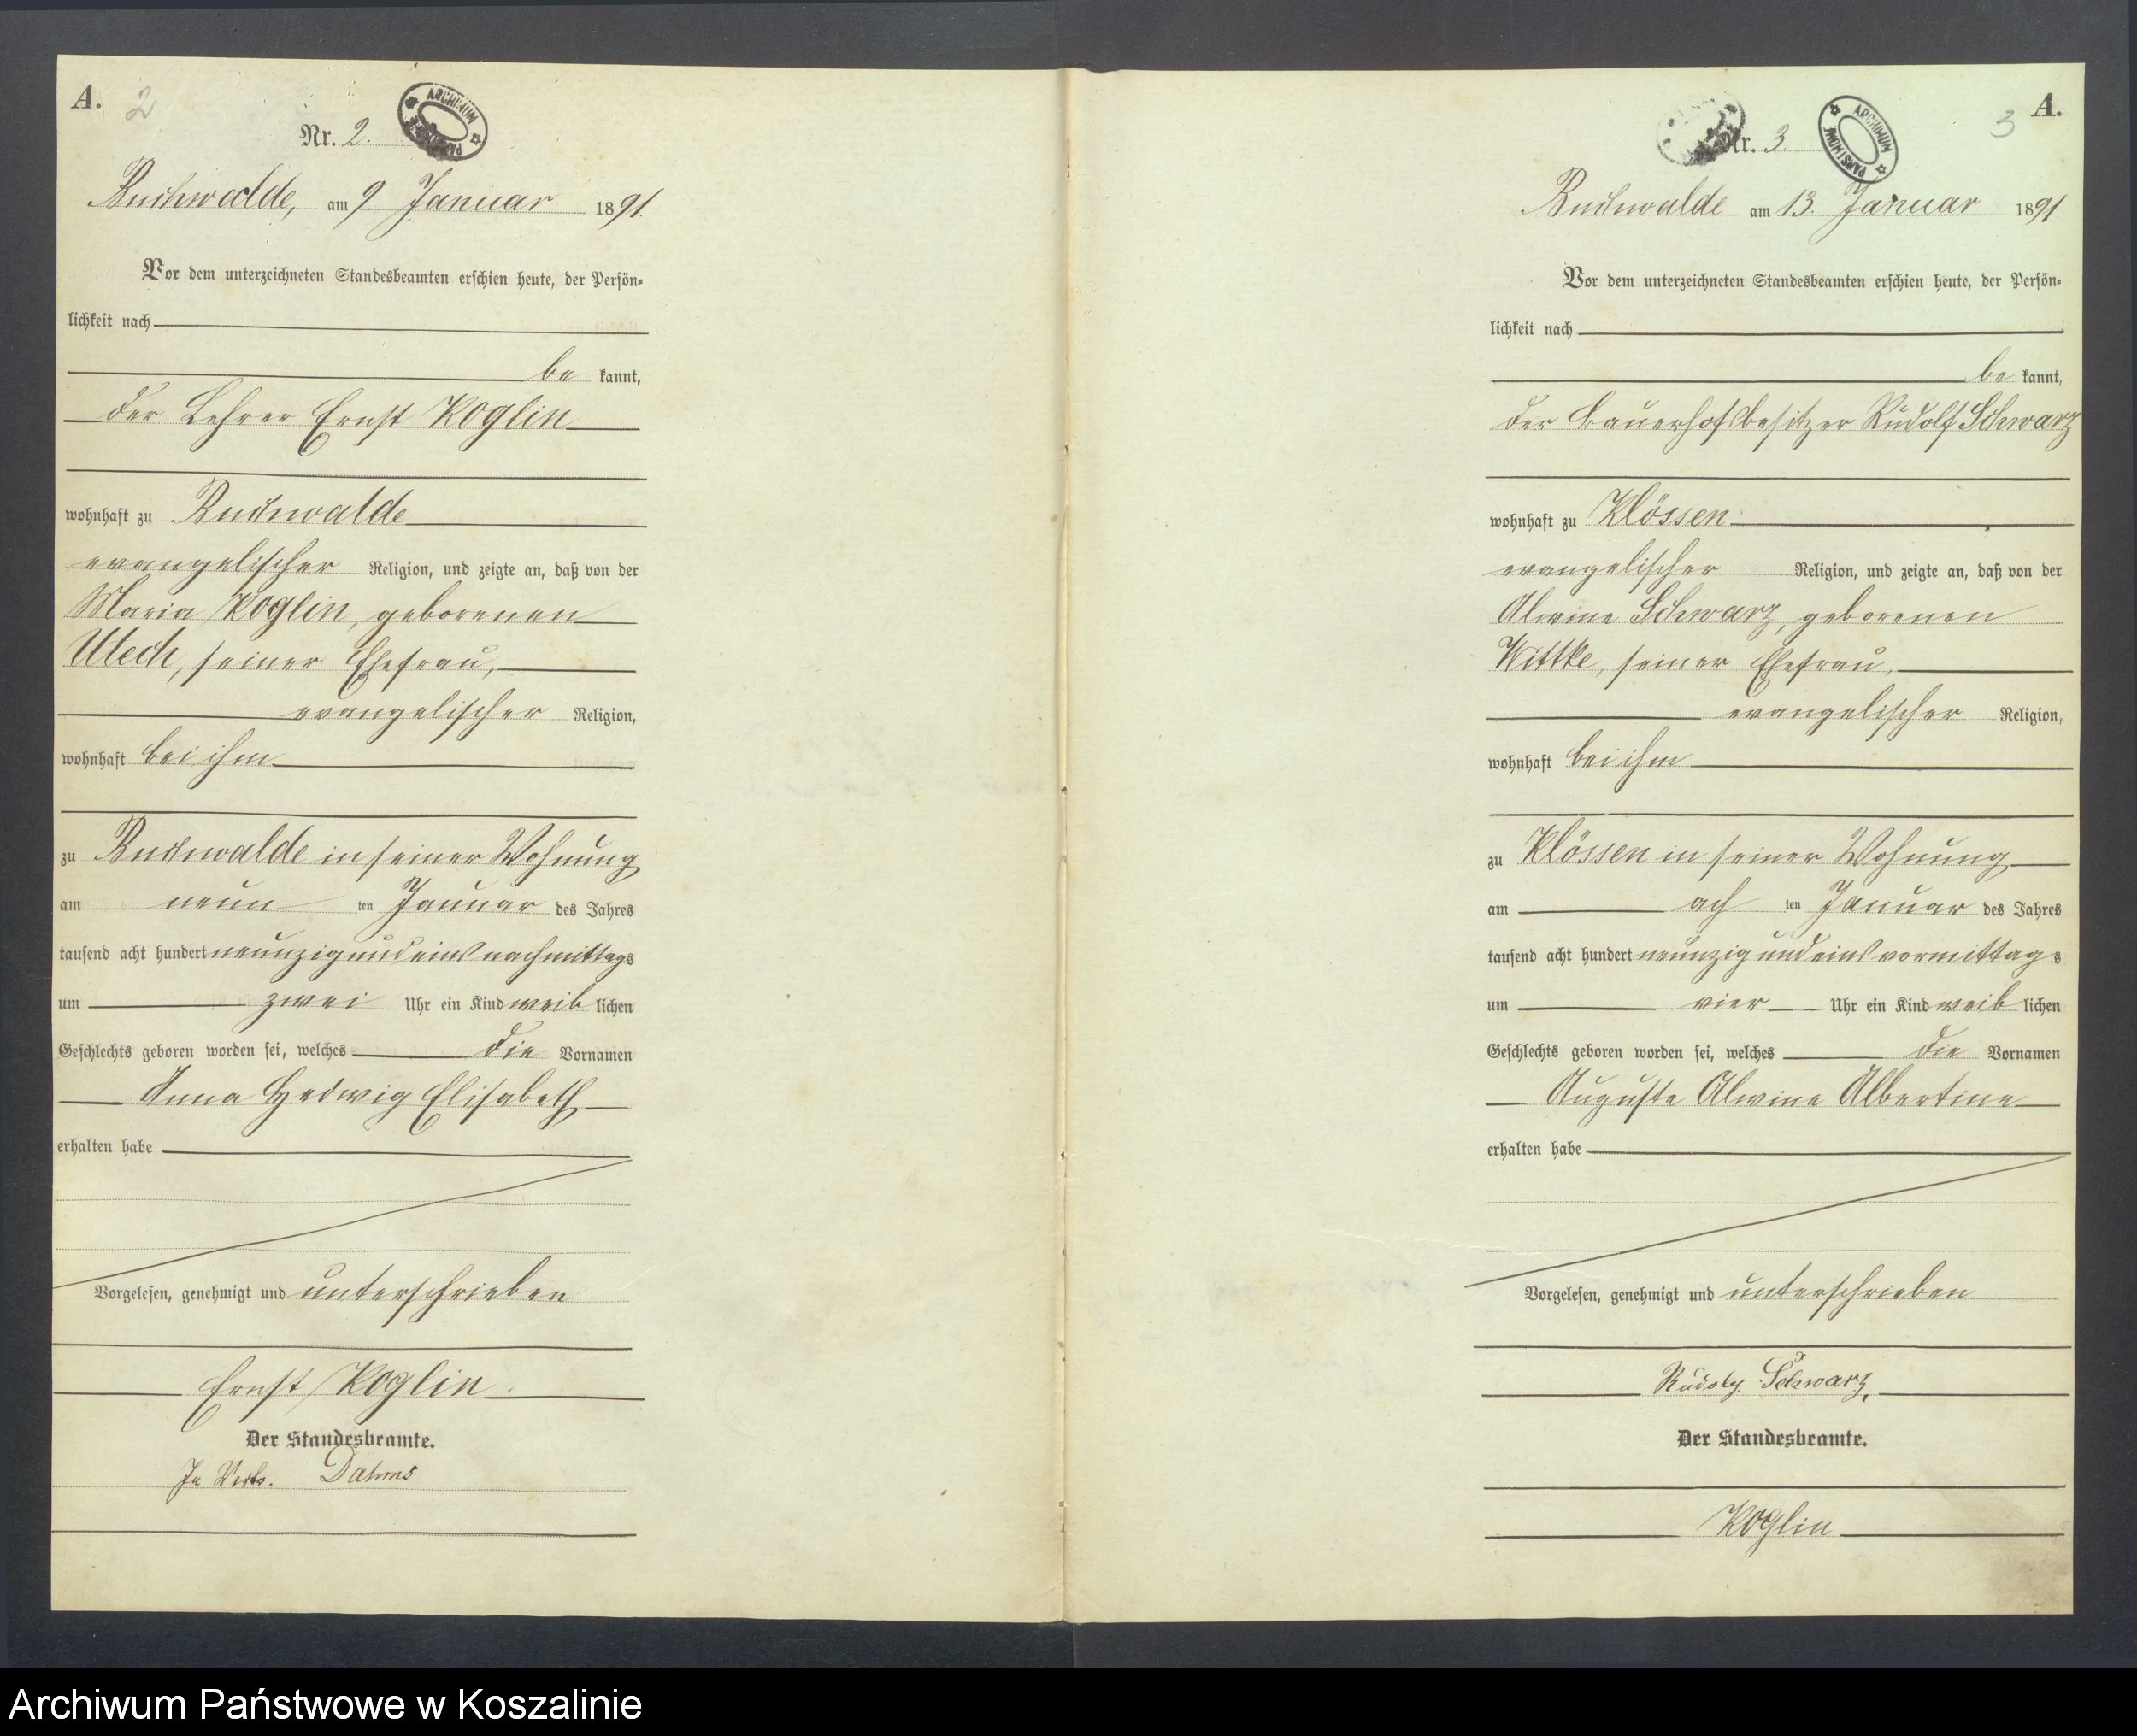 A.
2
Nr. 2.
ARCHIWUM
Buchwalde, am 9 Januar 1891.
Vor dem unterzeichneten Standesbeamten erschien heute, der Persön-
lichkeit nach
be kannt,
der Lehrer Ernst Koglin
wohnhaft zu Buchwalde
evangelischer Religion, und zeigte an, daß von der
Maria Koglin, geborenen
Utech, seiner Ehefrau,
evangelischer Religion,
wohnhaft bei ihm
zu Buchwalde in seiner Wohnung
am neun ten Januar des Jahres
tausend acht hundert neunzig und eins nachmittags
um zwei Uhr ein Kind weib lichen
Geschlechts geboren worden sei, welches die Vornamen
Anna Hedwig Elisabeth
erhalten habe
Vorgelesen, genehmigt und unterschrieben
Ernst Koglin.
Der Standesbeamte.
In Vertr. Dahms
A.
3
Nr. 3
ARCHIWUM PAŃSTWOWE
Buchwalde am 13. Januar 1891
Vor dem unterzeichneten Standesbeamten erschien heute, der Persön-
lichkeit nach
be kannt,
der Bauerhofsbesitzer Rudolf Schwarz
wohnhaft zu Klössen
evangelischer Religion, und zeigte an, daß von der
Alwine Schwarz, geborenen
Wittke, seiner Ehefrau,
evangelischer Religion,
wohnhaft bei ihm
zu Klössen in seiner Wohnung
am ach ten Januar des Jahres
tausend acht hundert neunzig und eins vormittags
um vier Uhr ein Kind weib lichen
Geschlechts geboren worden sei, welches die Vornamen
Auguste Alwine Albertine
erhalten habe
Vorgelesen, genehmigt und unterschrieben
Rudolf Schwarz,
Der Standesbeamte.
Koglin
Archiwum Państwowe w Koszalinie